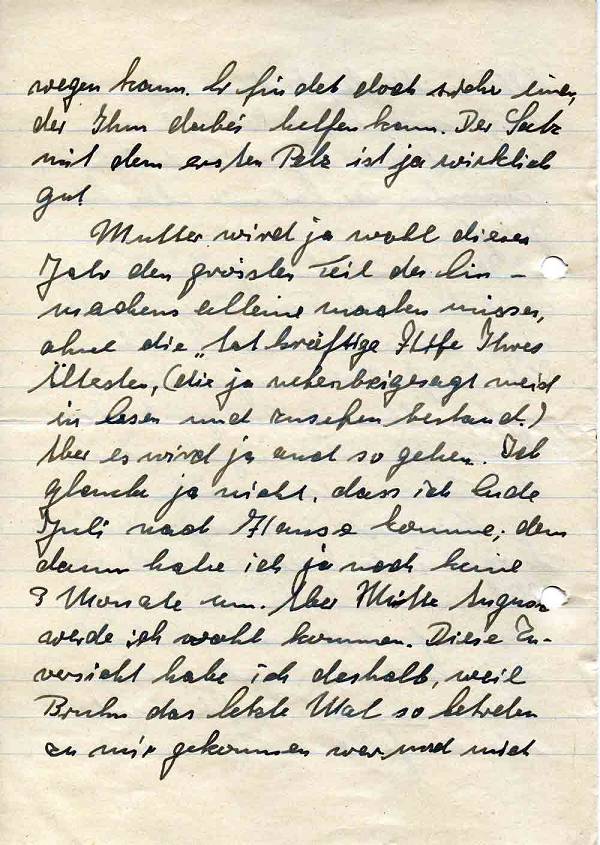 wegen kann. Er findet doch sicher einen,
der Ihm dabei helfen kann. Der Satz
mit dem ersten Pelz ist ja wirklich
gut
Mutter wird ja wohl dieses
Jahr den grössten Teil des Ein-
machens alleine machen müssen,
ohne die „tatkräftige Hilfe Ihres
Ältesten, (die ja nebenbeigesagt meist
in lesen und zusehen bestand.)
Aber es wird ja auch so gehen. Ich
glaube ja nicht, dass ich Ende
Juli nach Hause komme, denn
dann habe ich ja noch keine
3 Monate um. Aber Mitte August
werde ich wohl kommen. Diese Zu-
versicht habe ich deshalb, weil
das letzte Mal so betreten
zu mir gekommen war und mich